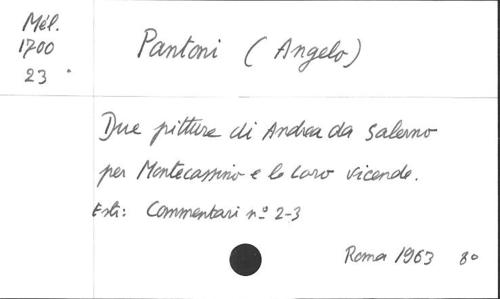 Mél.
1700
23
Pantoni (Angelo)
Due pitture di Andrea da Salerno
per Montecassino e le loro vicende.
Estr: Commentari nº 2-3
Roma 1963 8º